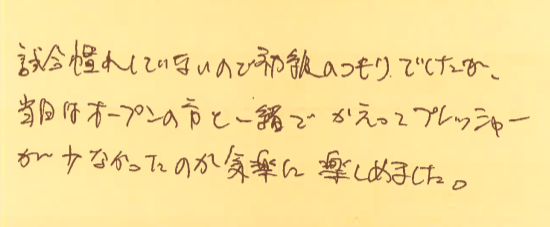 試合慣れしていないので初級のつもりでしたが、
当日はオープンの方と一緒で かえってプレッシャー
が少なかったのが気楽に 楽しめました。